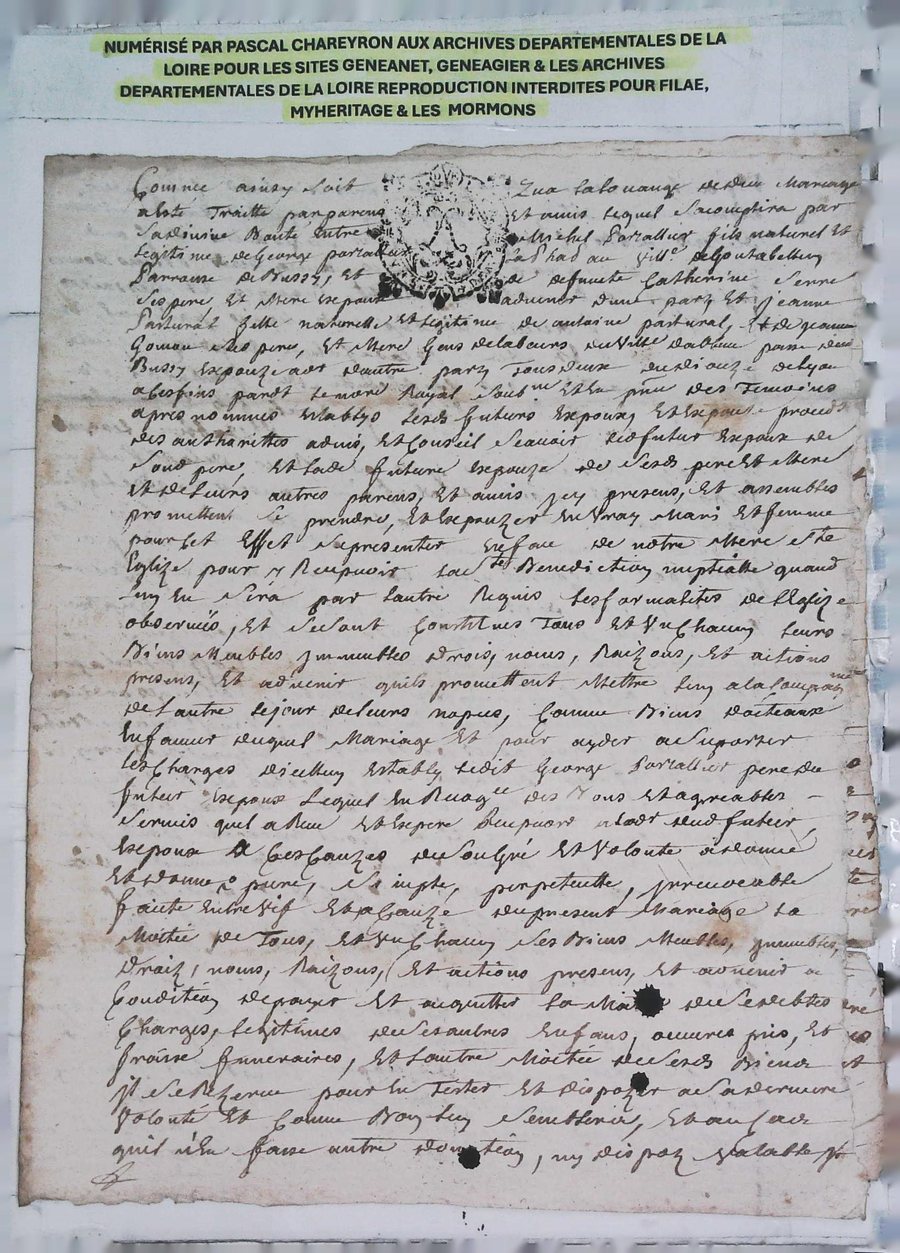 NUMÉRISÉ PAR PASCAL CHAREYRON AUX ARCHIVES DEPARTEMENTALES DE LA
LOIRE POUR LES SITES GENEANET, GENEAGIER & LES ARCHIVES
DEPARTEMENTALES DE LA LOIRE REPRODUCTION INTERDITES POUR FILAE,
MYHERITAGE & LES MORMONS
Comme ainsy soit Qua la louange de dieu Mariage
a Esté Traitté par parens Et amis lequel Sacomplira par
Sa divine Bonté Entre Michel fils naturel Et
Legitime de George
de Bussy, Et de defuncte Catherine Serre
Ses pere Et Mere Expoux advenir dune part Et jeanne
Pasturat fille naturelle Et legitime de antoine pasturat, Et de jeanne
Ses pere, Et Mere Gens de labeurs du
Bussy Expouze dautre part Tous deux du dioceze de lyon
a Ces fins pardt le nore Royal Soubne Et En pnce des Temoins
apres nommés Establys lesds futurs Expoux, Et Expouze proceds
des authorittés advis, Et Conseil Scavoir led futur Expoux de
Sond pere, Et lade future Expouze de Sesds pere Et Mere
Et de leurs autres parens, Et amis jcy presens, Et assembles
promettent Se prendre, Et Expouzer En Vray Mari Et femme
pour Cet Effet Se presenter En face de notre Mere Ste
Eglize pour y Recepvoir la Benediction nuptialle quand
lun En Sera par lautre Requis les formalites de leglize
observées, Et Se Sont Constitués Tous Et Vn Chacun leurs
Biens Meubles jmmeubles drois, noms, Raizons, Et actions
presens, Et advenir quils promettent Mettre lun a la
de lautre le jour de leurs nopces, Comme Biens doteaux
En faveur duquel Mariage Et pour ayder a Suporter
les Charges dicelluy Estably ledit George pere du
futur Expoux Lequel En des Bons Et agreables
Services quil a Receu Et Espere Recepvoir dud futur
Expoux de Son Gré Et Volonté a donné
Et donne pure, Simple, perpetuelle, jrrevocable
faitte Entre Vif Et a Cauze du present Mariage la
Moitié de Tous, Et Vn Chacun Ses Biens Meubles, jmmeubles,
Droiz, noms, Raizons, Et actions presens, Et advenir a
Condition de payer Et acquitter la de Ses debtes
Charges, legitimes de Ses autres Enfans, oeuvres pies, Et
fraixe funeraires, Et lautre Moitié de Sesds Biens
jl Se Rezerve pour En Tester Et dispozer a Sa derniere
Volonté Et Comme Bon luy Semblera, Et au Cas
quil nEn fasse autre donation, ny dispoz Valable